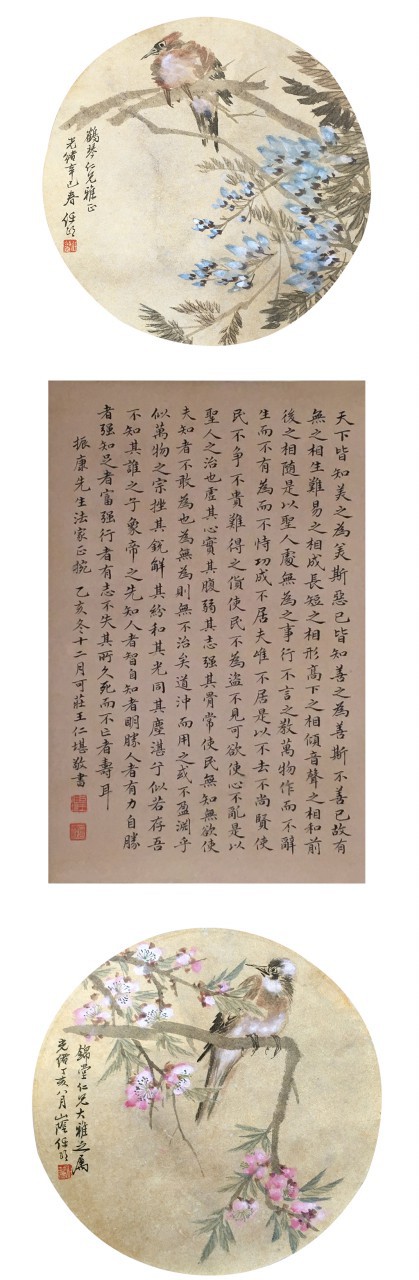 鶴琴仁兄雅正
光緒辛巳春任頤
天下皆知美之為美斯惡已皆知善之為善斯不善已故有
無之相生難易之相成長短之相形高下之相傾音聲之相和前
後之相隨是以聖人處無為之事行不言之教萬物作而不辭
生而不有為而不恃功成不居夫唯不居是以不去不尚賢使
民不爭不貴難得之貨使民不為盜不見可欲使心不亂是以
聖人之治也虛其心實其腹弱其志强其骨常使民無知無欲使
夫知者不敢為也為無為則無不治矣道沖而用之或不盈淵乎
似萬物之宗挫其銳解其紛和其光同其塵湛兮似若存吾
不知其誰之子象帝之先知人者智自知者明勝人者有力自勝
者强知足者富强行者有志不失其所久死而不亡者壽耳
振康先生法家正捥 乙亥冬十二月可莊王仁堪敬書
錦堂仁兄大雅之属
光緒丁亥八月山陰任頤